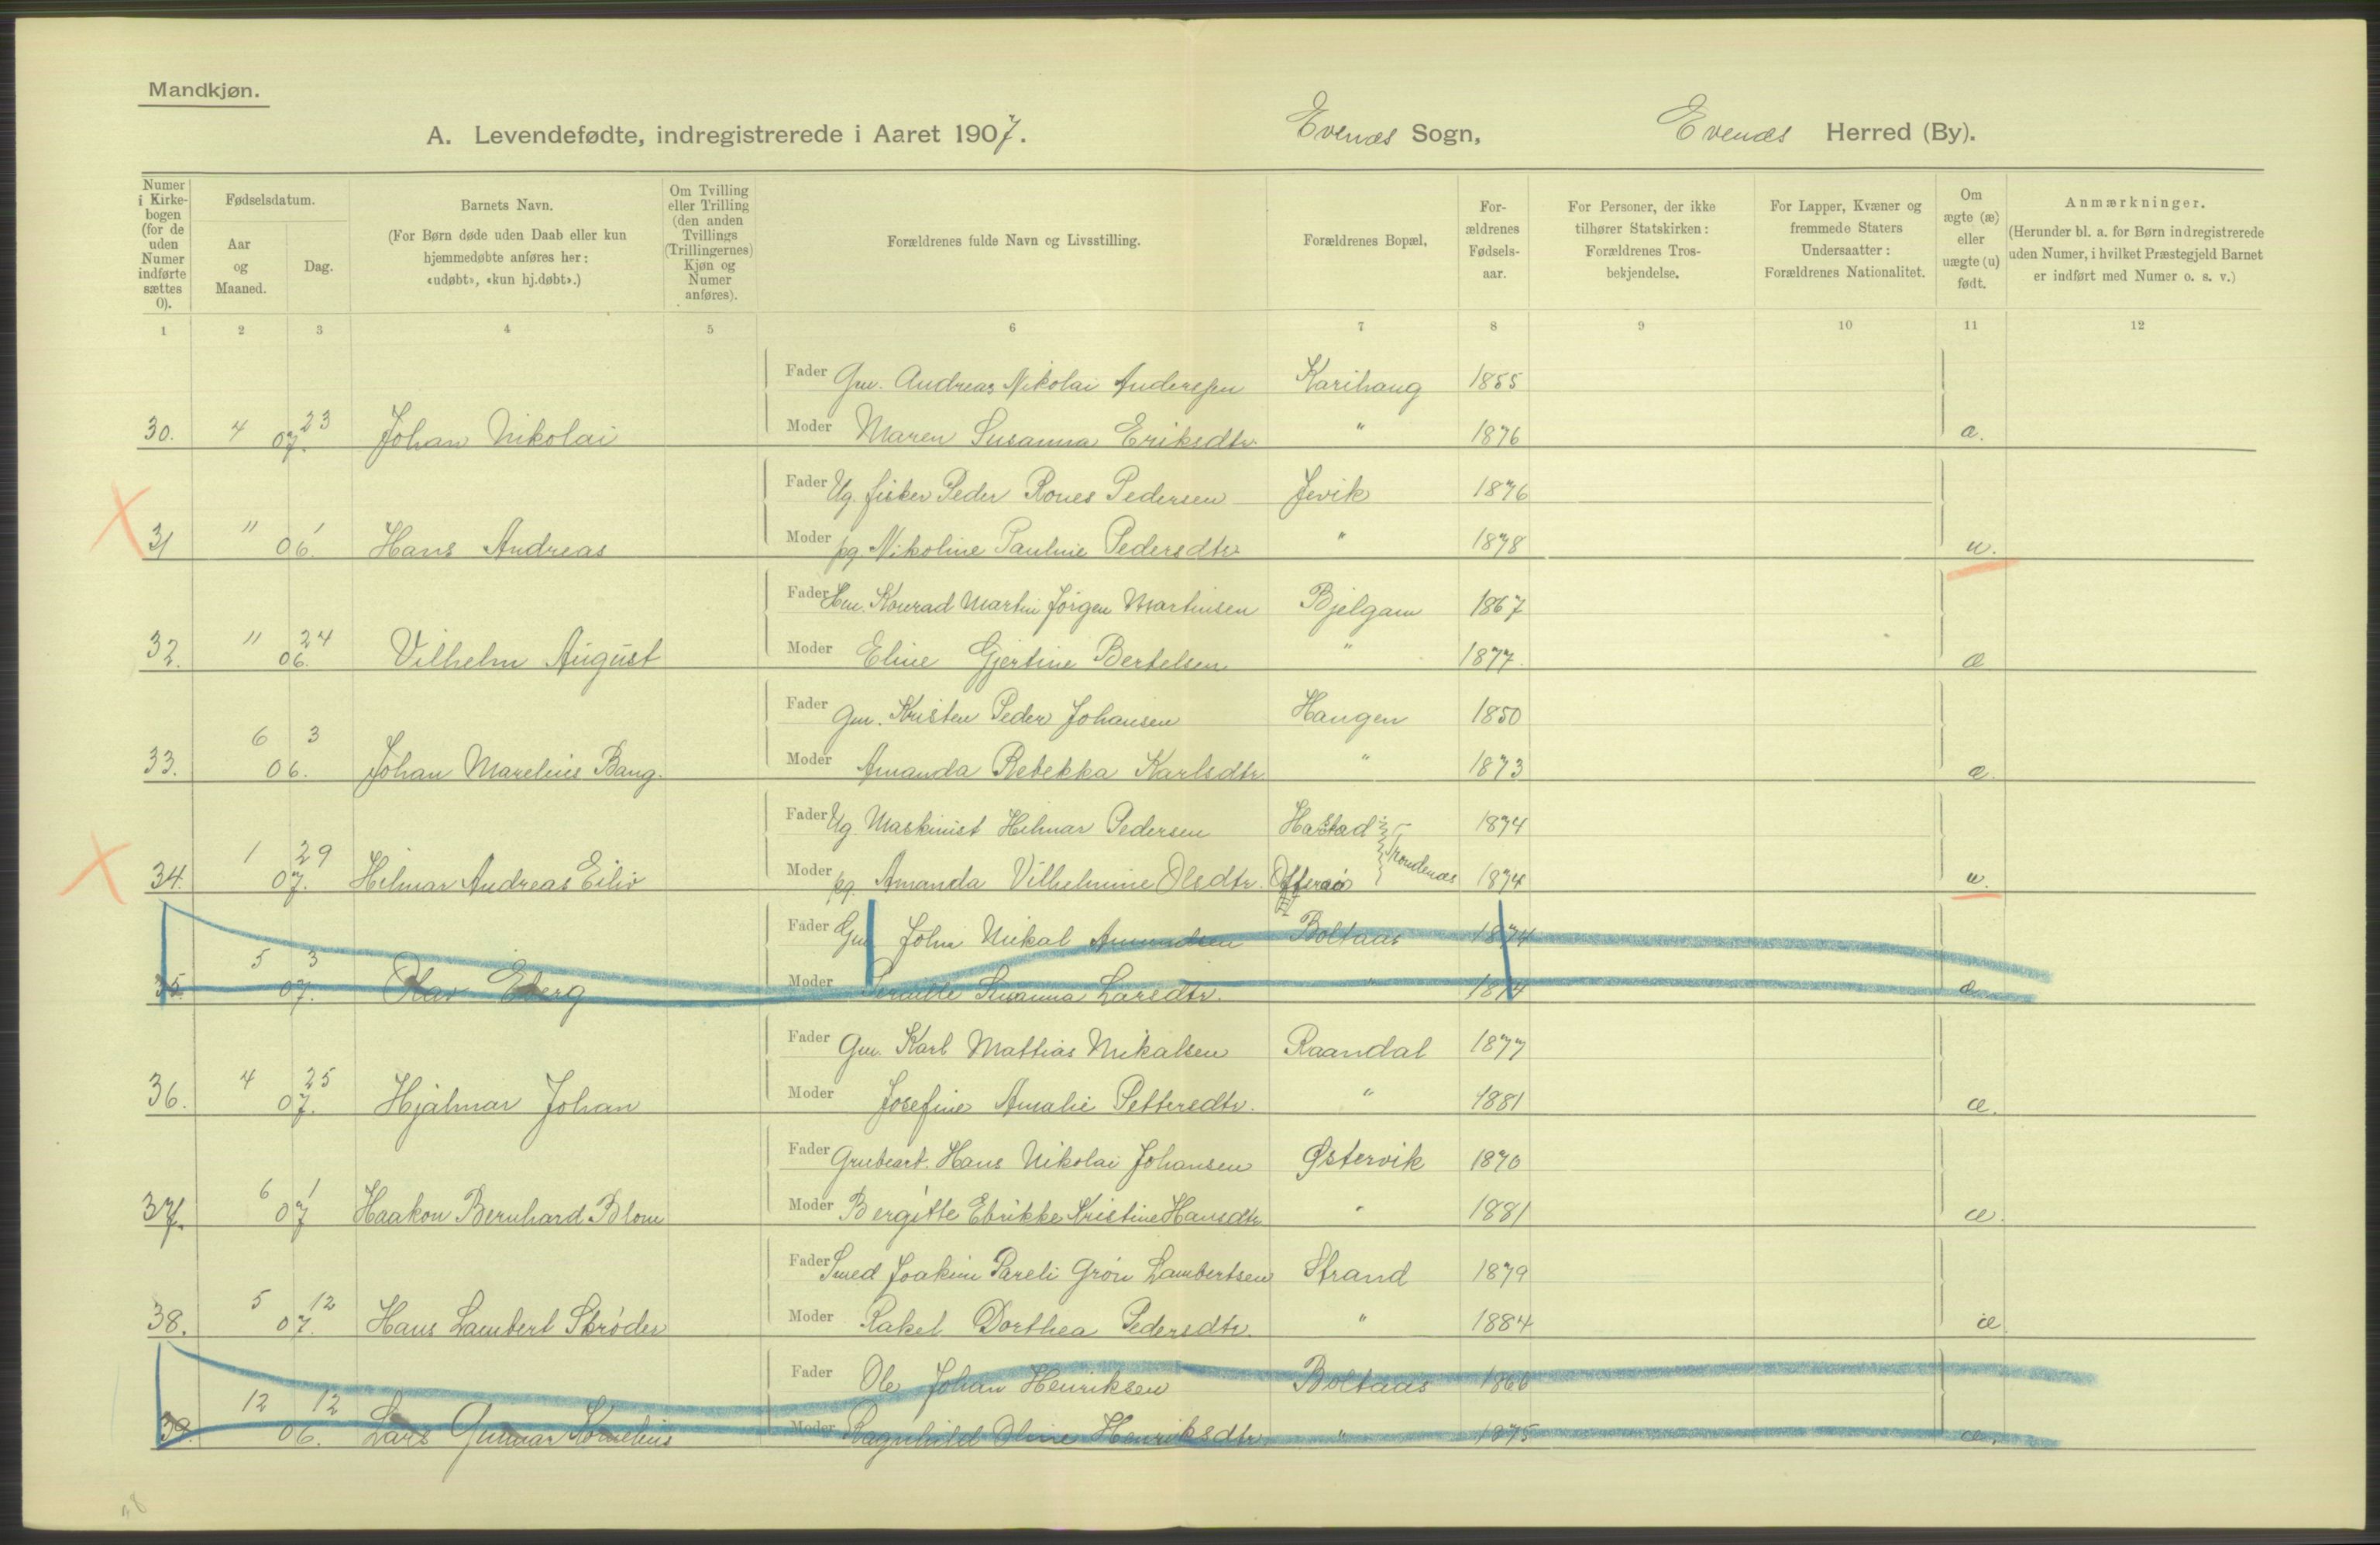 Mandkjøn.
A. Levendefødte, indregistrerede i Aaret 1907. Evenæs Sogn, Evenæs Herred (By).
Numer i Kirkebogen (for de uden Numer indførte sættes 0).
Fødselsdatum.
Aar og Maaned.
Dag.
Barnets Navn.
(For Børn døde uden Daab eller kun hjemmedøbte anføres her: «udøbt», «kun hj.døbt».)
Om Tvilling eller Trilling (den anden Tvillings (Trillingernes) Kjøn og Numer anføres).
Forældrenes fulde Navn og Livsstilling.
Forældrenes Bopæl,
Forældrenes Fødselsaar.
For Personer, der ikke tilhører Statskirken: Forældrenes Trosbekjendelse.
For Lapper, Kvæner og fremmede Staters Undersaatter: Forældrenes Nationalitet.
Om ægte (æ) eller uægte (u) født.
Anmærkninger.
(Herunder bl. a. for Børn indregistrerede uden Numer, i hvilket Præstegjeld Barnet er indført med Numer o. s. v.)
1 2 3 4 5 6 7 8 9 10 11 12
Fader Gm. Andreas Nikolai Andersen Karihaug 1855
30. 4 07. 23 Johan Nikolai Moder Maren Susanna Eriksdtr. " 1876 æ.
Fader Ug. fisker Peder Rones Pedersen Jevik 1876
31 " 06. 1 Hans Andreas Moder pg Nikoline Pauline Pedersdtr. " 1878 u.
Fader Konrad Martin Jørgen Martinsen Bjelgam 1867
32. " 06. 24 Vilhelm August Moder Eline Gjertine Bertelsen " 1877. æ
Fader Gm. Kristen Peder Johansen Haugen 1850
33. 6 06. 3 Johan Marelius Bang. Moder Amanda Rebekka Karlsdtr. " 1873 æ.
Fader Ug. Maskinist Hilmar Pedersen Harstad 1874
34. 1 07. 29 Hilmar Andreas Eiliv Moder pg Amanda Vilhelmine Olsdtr. Trondenæs 1874 u.
Fader Gm John Mikal Amundsen Boltaas 1874
35. 5 07. 3 Olav Eberg Moder Pernille Susanna Larsdtr. " 1874 æ.
Fader Gm. Karl Mathias Mikalsen Raandal 1877
36. 4 07. 25 Hjalmar Johan Moder Josefine Amalie Pettersdtr. " 1881 æ.
Fader Grubearb. Hans Nikolai Johansen Østervik 1870
37. 6 07 1 Haakon Bernhard Blom Moder Bergitte Ebrikke Kristine Hansdtr " 1881 æ.
Fader Smed Joakim Pareli Grøn Lambertsen Strand 1879
38. 5 07. 12 Hans Lambert Strøder Moder Rakel Dorthea Pedersdtr. " 1884 æ
Fader Ole Johan Henriksen Boltaas 1866
39. 12 06. 12 Lars Gunnar Kornelius Moder Ragnhild Oline Henriksdtr " 1875 æ.